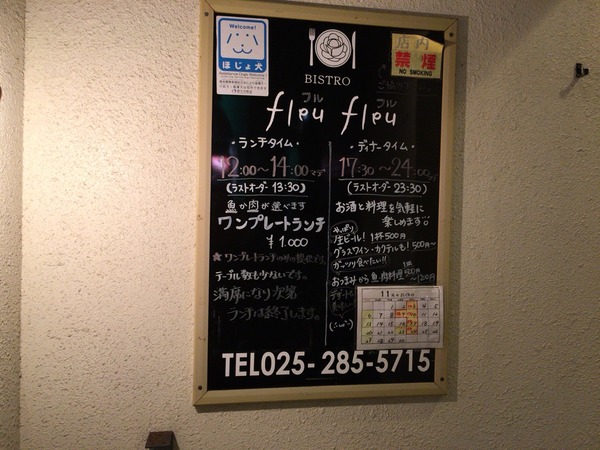 Welcome!
ほじょ犬
店内
禁煙
NO SMOKING
BISTRO
フル フル
fleu fleu
・ランチタイム・
12:00〜14:00マデ
(ラストオーダー 13:30)
魚か肉が選べます
ワンプレートランチ
¥1.000
★ワンプレートランチのみの提供です。
テーブル数も少ないです。
満席になり次第
ランチは終了します。
・ディナータイム・
17:30〜24:00
(ラストオーダー 23:30)
お酒と料理を気軽に
楽しめます
やっぱり
生ビール! 1杯500円
グラスワイン・カクテルも! 500円〜
ガッツリ食べたい!!
おつまみから魚・肉料理
デザートも
11
TEL025-285-5715